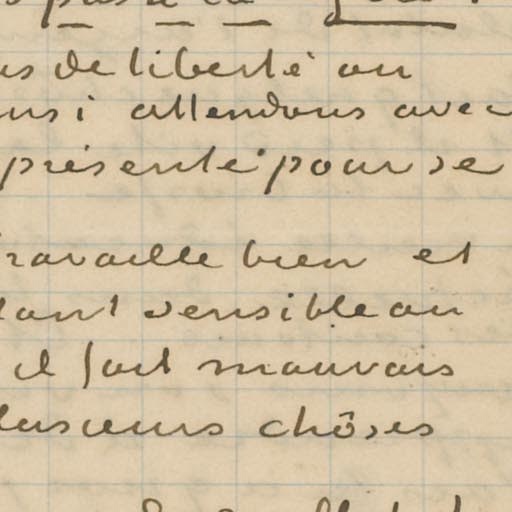 us de liberté au
nsi attendons avec
présenté pour se
ravaille bien et
tant sensible au
il fait mauvais
lusieurs chôses